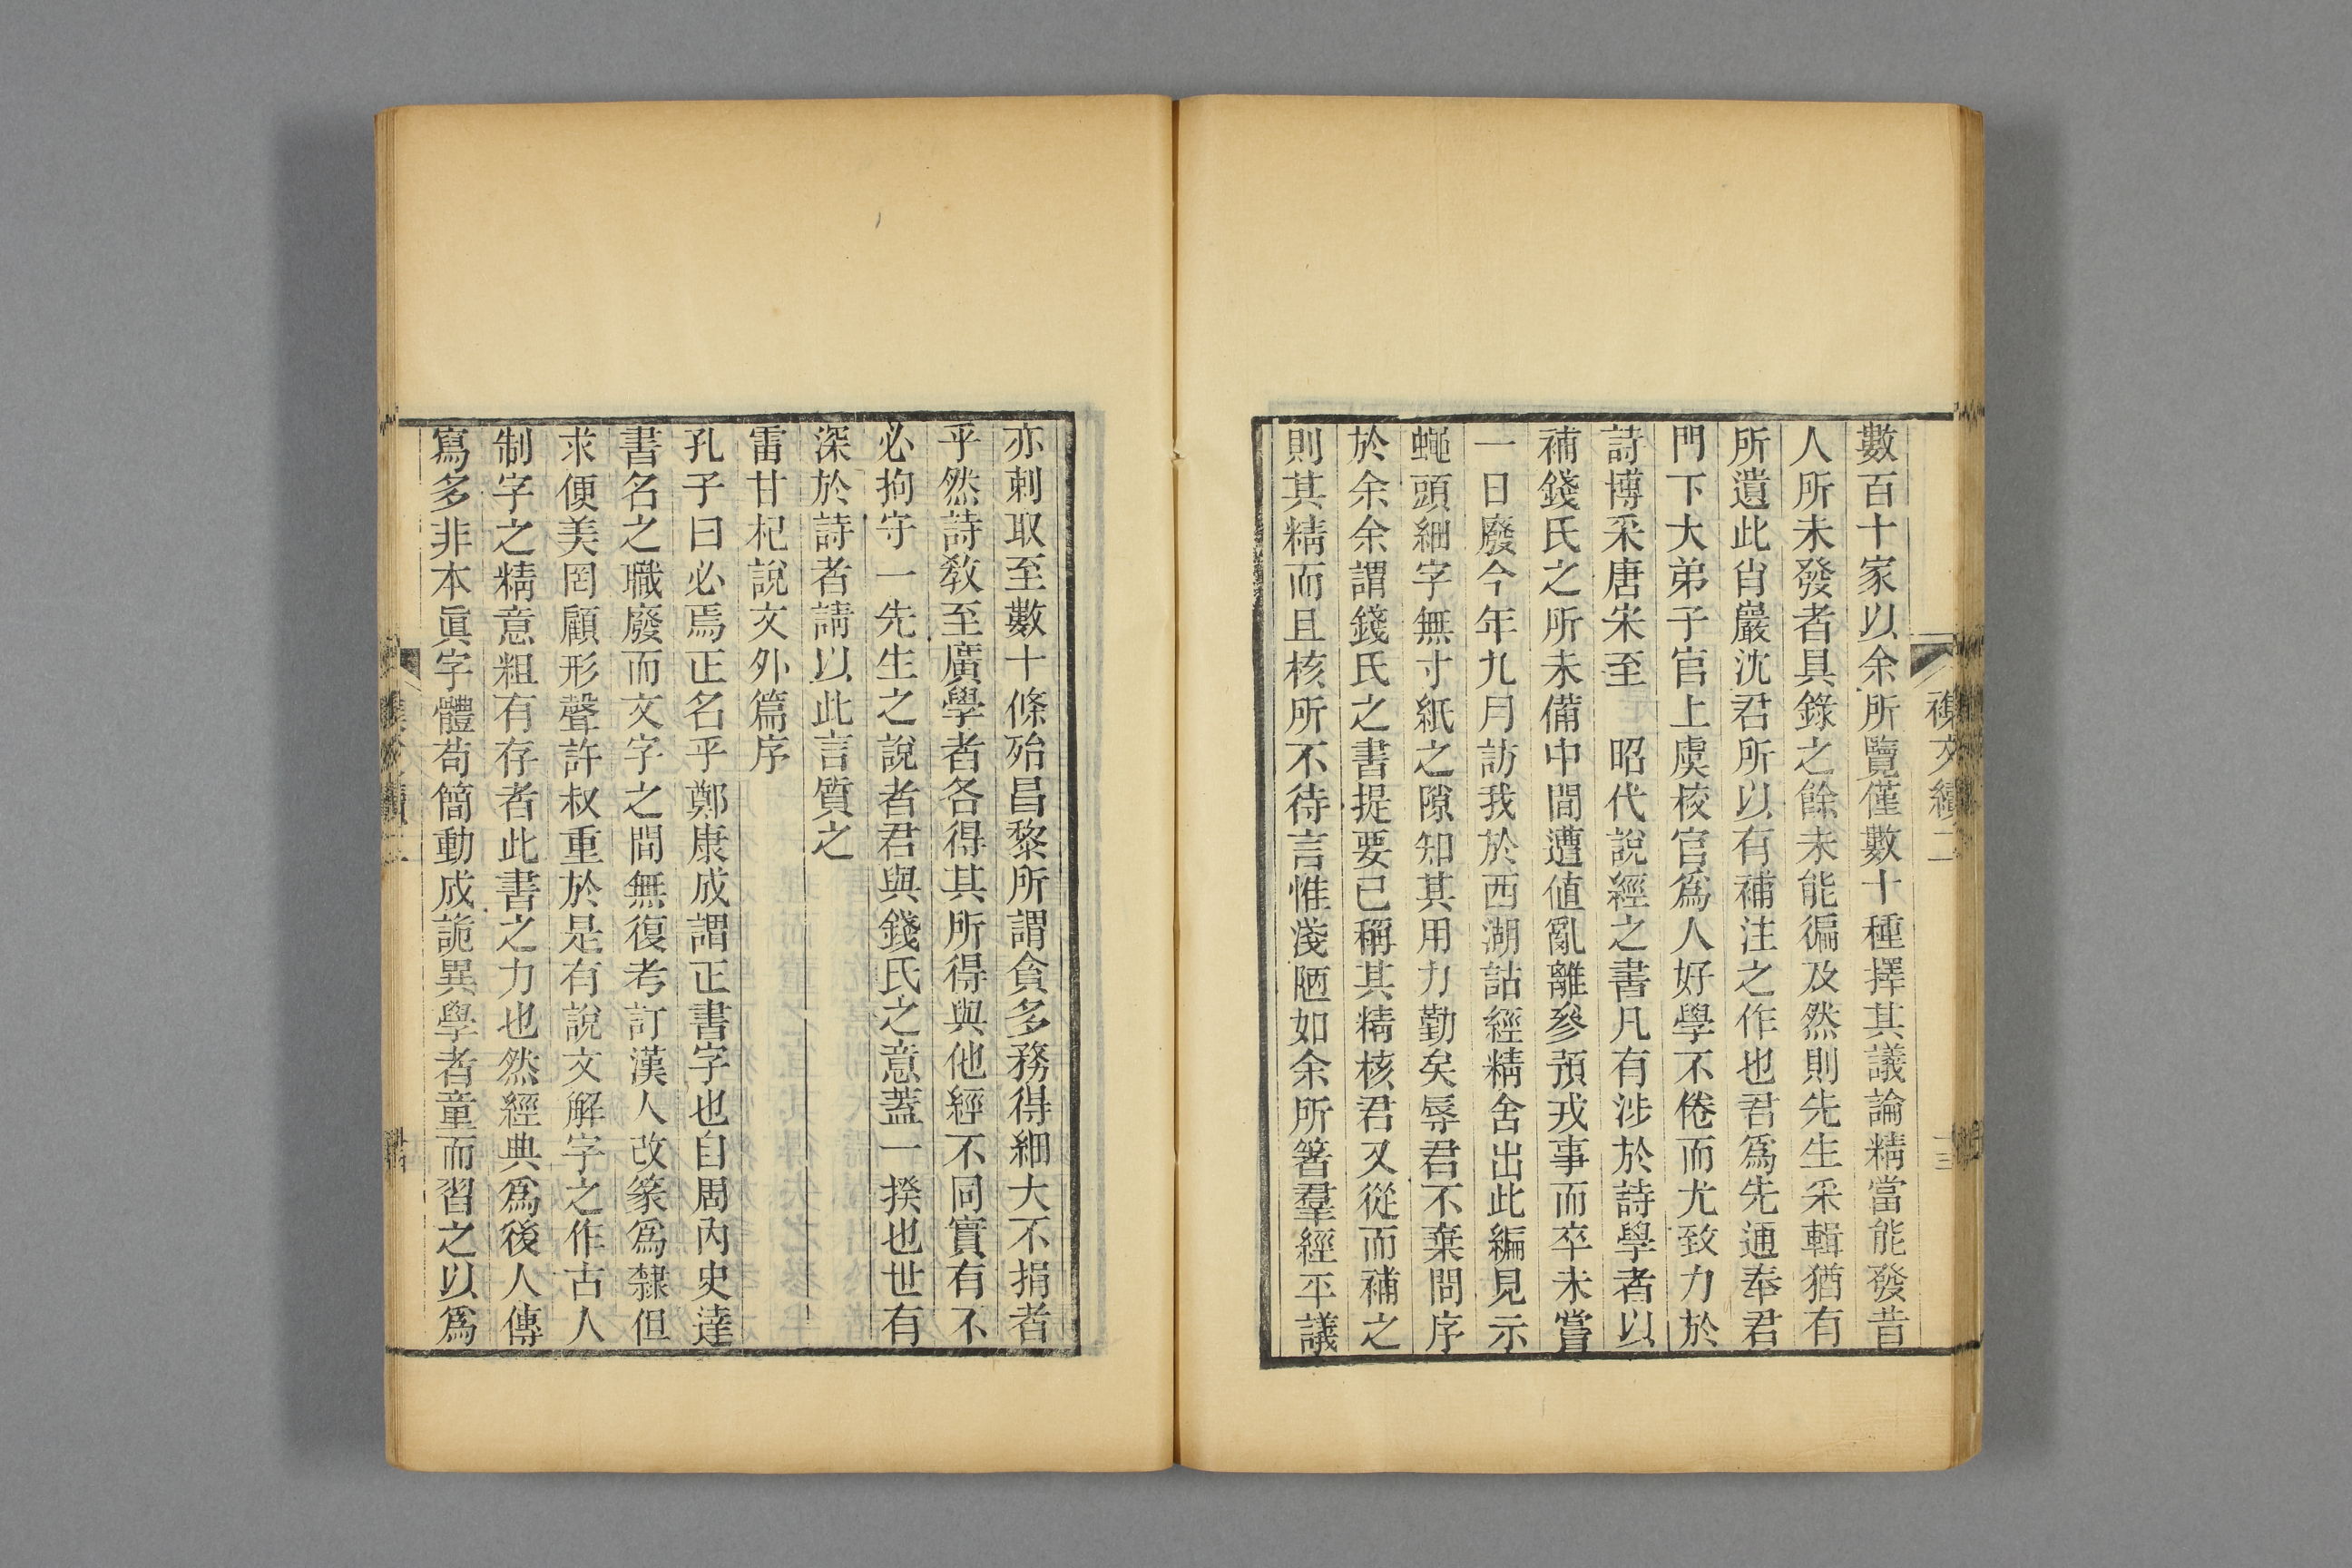 襍文續二
十三
數百十家以余所覽僅數十種擇其議論精當能發昔
人所未發者具錄之餘未能徧及然則先生采輯猶有
所遺此肖巖沈君所以有補注之作也君爲先通奉君
門下大弟子官上虞校官爲人好學不倦而尤致力於
詩博采唐宋至　昭代說經之書凡有涉於詩學者以
補錢氏之所未備中間遭値亂離參預戎事而卒未嘗
一日廢今年九月訪我於西湖詁經精舍出此編見示
蠅頭細字無寸紙之隙知其用力勤矣辱君不棄問序
於余余謂錢氏之書提要已稱其精核君又從而補之
則其精而且核所不待言惟淺陋如余所箸羣經平議
亦刺取至數十條殆昌黎所謂貪多務得細大不捐者
乎然詩敎至廣學者各得其所得與他經不同實有不
必拘守一先生之說者君與錢氏之意蓋一揆也世有
深於詩者請以此言質之
雷甘杞說文外篇序
孔子曰必焉正名乎鄭康成謂正書字也自周內史達
書名之職廢而文字之間無復考訂漢人改篆爲隸但
求便美罔顧形聲許叔重於是有說文解字之作古人
制字之精意粗有存者此書之力也然經典爲後人傳
寫多非本眞字體苟簡動成詭異學者童而習之以爲